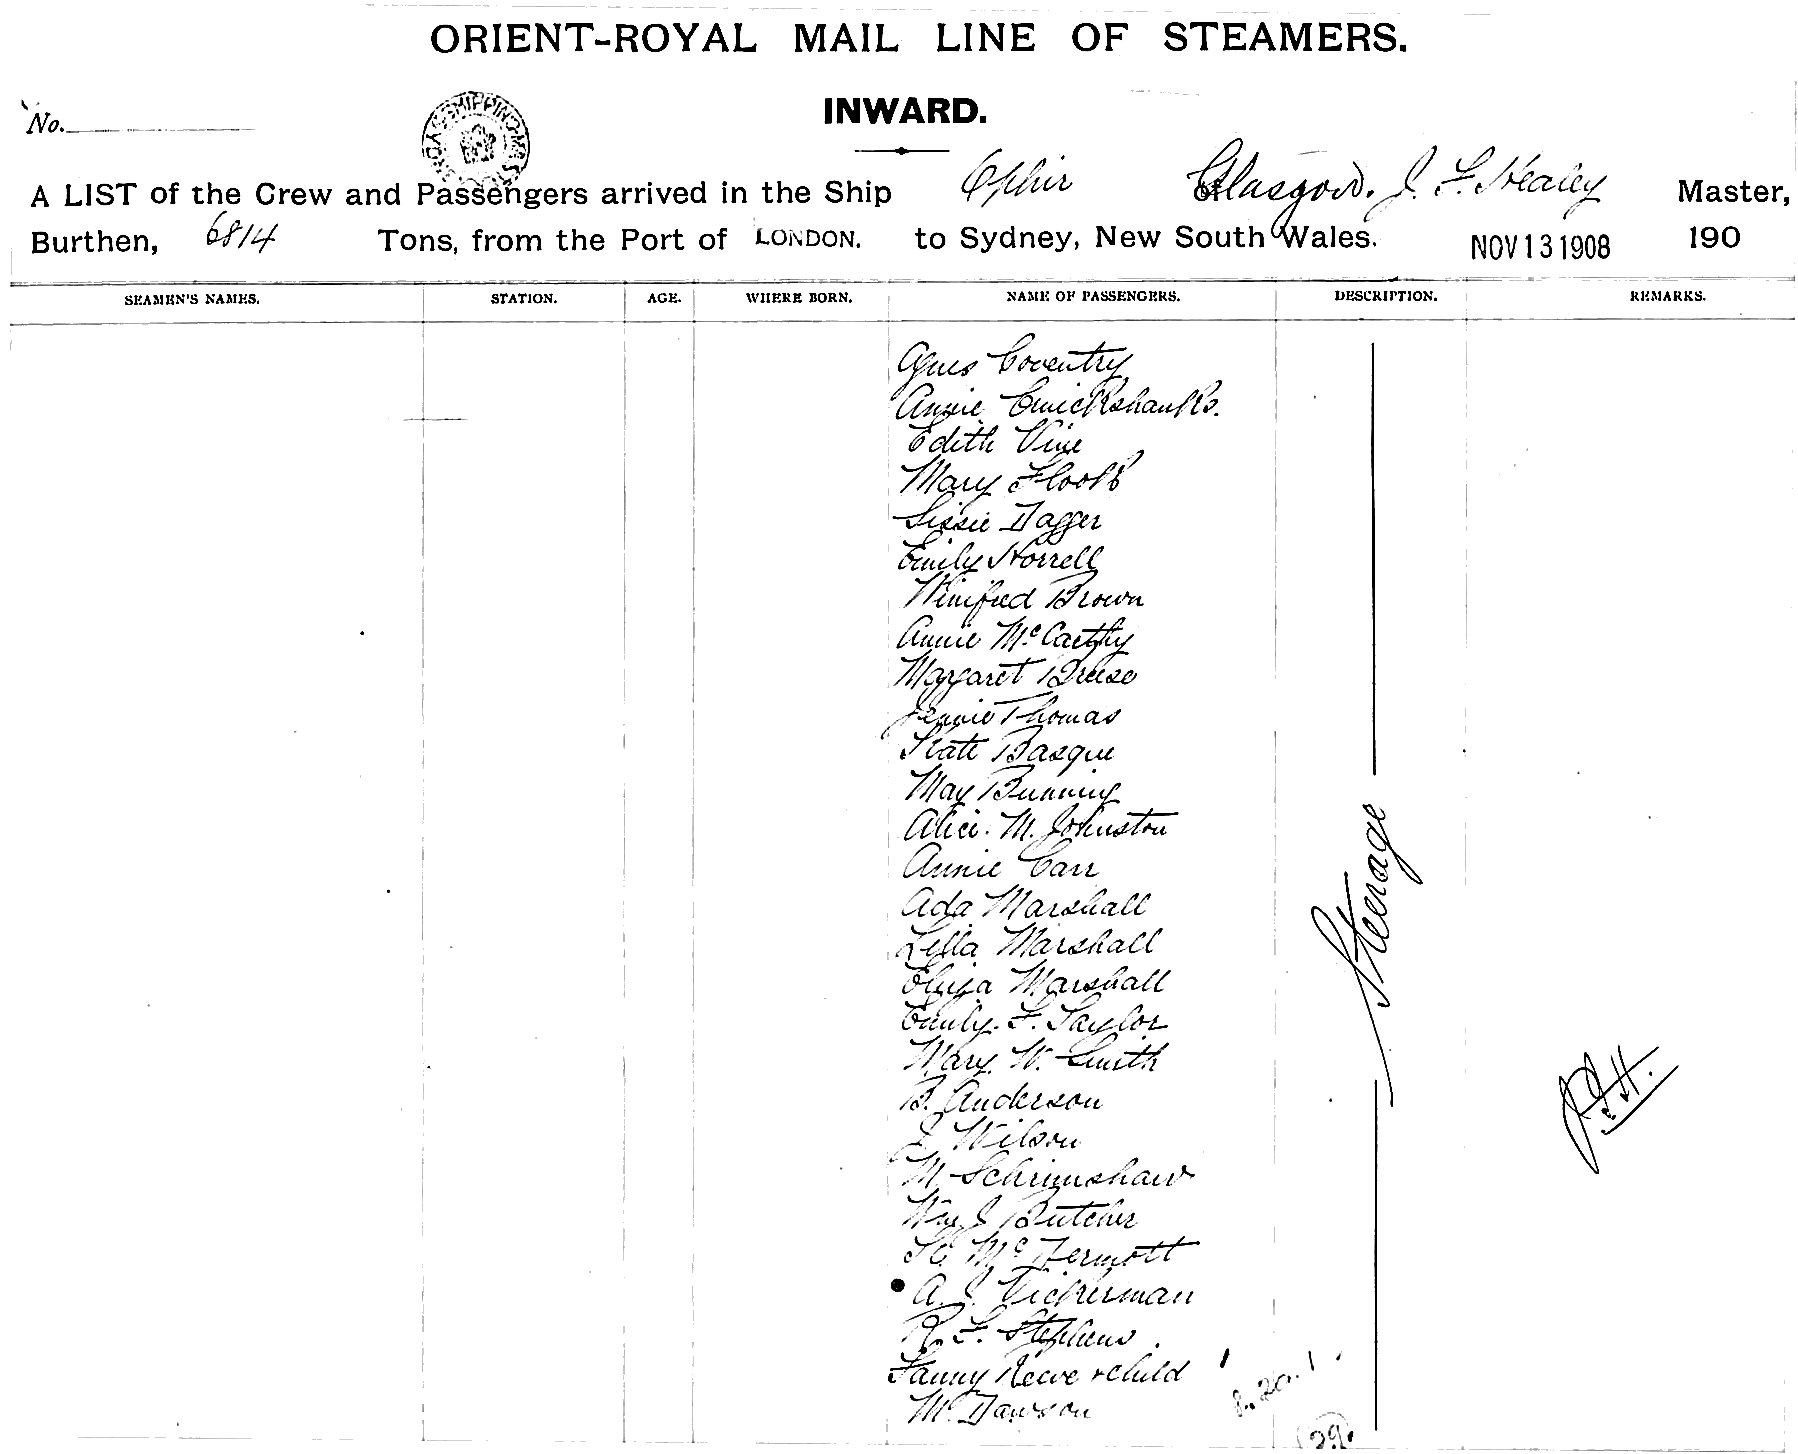 ORIENT-ROYAL MAIL LINE OF STEAMERS.
No.
INWARD.
A LIST of the Crew and Passengers arrived in the Ship Ophir of Glasgow. J. F. Healey Master,
Burthen, 6814 Tons, from the Port of LONDON. to Sydney, New South Wales. NOV 13 1908 190
SEAMEN'S NAMES. STATION. AGE. WHERE BORN. NAME OF PASSENGERS. DESCRIPTION. REMARKS.
Agnes Coventry
Annie Cruickshanks.
Edith Vine
Mary Flook
Lissie Dagger
Emily Horrell
Winifred Brown
Annie McCarthy
Margaret Breese
Jennie Thomas
Kate Basque
May Bunning
Alice. M. Johnston
Annie Carr
Ada Marshall
Lilla Marshall
Eliza Marshall
Emily. F. Taylor
Mary. W. Smith
B. Anderson
J. Wilson
M. Schrimshaw
Wm J Butcher
McDermott
A. J. Vickerman
R. F. Stephens.
Fanny Reeve + child 1
M. Dawson
Steerage
J.F.H.
29